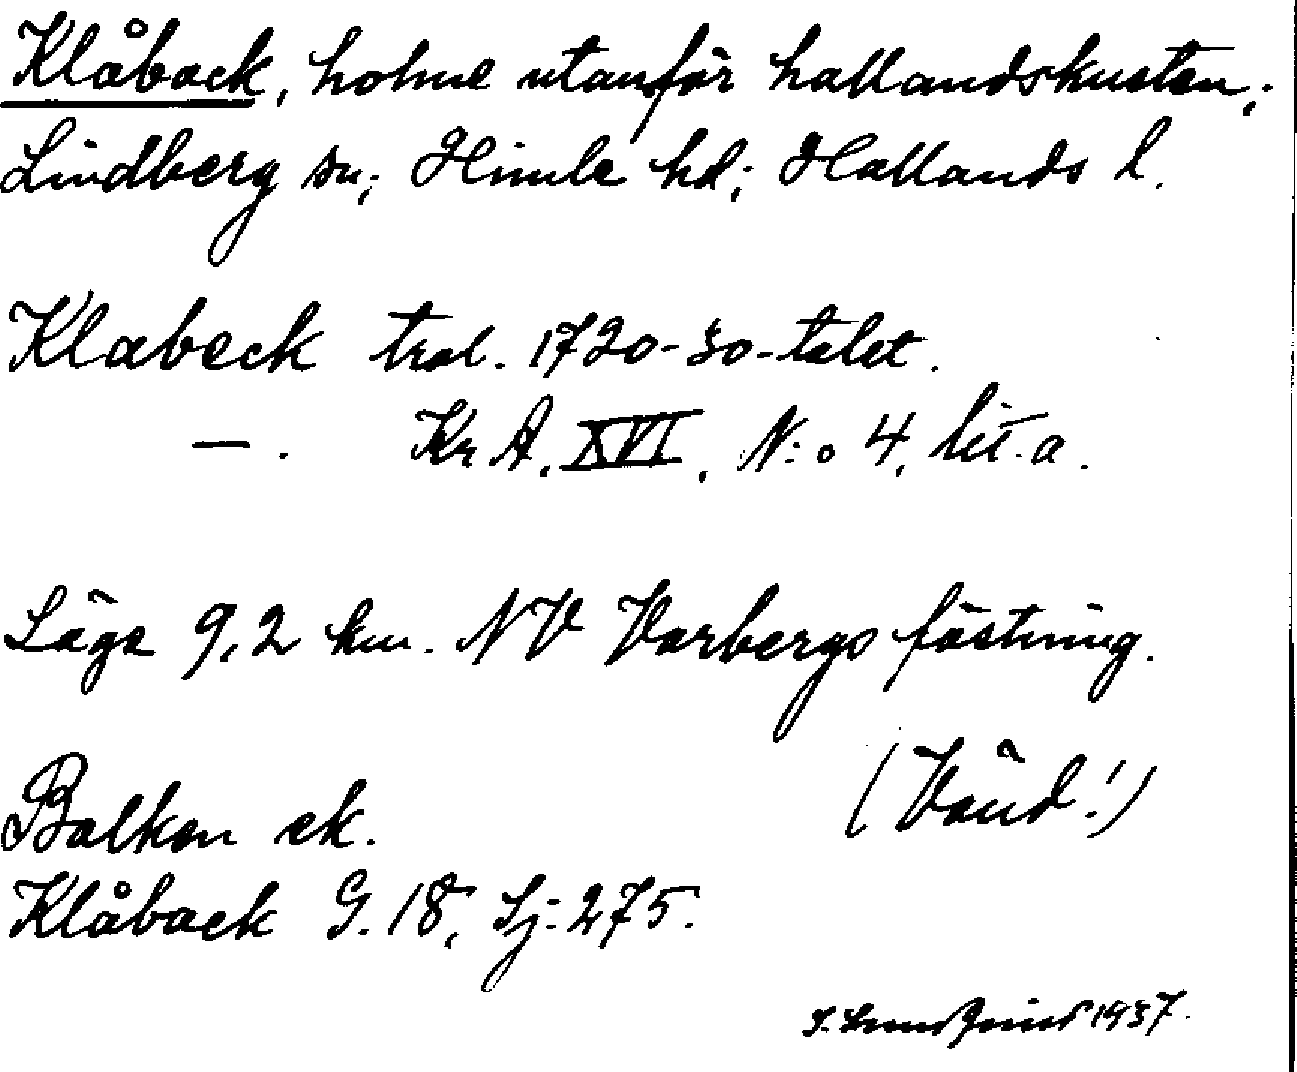 Klåback, holme utanför hallandskusten;
Lindberg sn; Himle hd; Hallands l.
Klabeck trol. 1720-30-talet.
—. Kr A. XVI. N:o 4, lit. a.
Läge 9,2 km. NV Varbergs fästning.
(Vänd!)
Balken ek.
Klåback G. 18, Sj: 275.
1937.